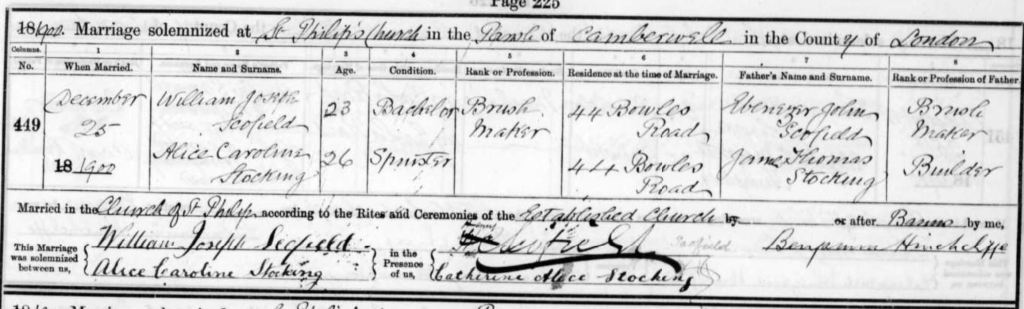 Page 225
18 1900. Marriage solemnized at St Philip's Church in the Parish of Camberwell in the County of London
Columns. 1 2 3 4 5 6 7 8
No. When Married. Name and Surname. Age. Condition. Rank or Profession. Residence at the time of Marriage. Father's Name and Surname. Rank or Profession of Father.
December William Joseph 23 Bachelor Brush 44 Bowles Ebenezer John Brush
449 25 Scofield Maker Road Scofield Maker
18 1900 Alice Caroline 26 Spinster 44 Bowles James Thomas Builder
Stocking Road Stocking
Married in the Church of St Philip according to the Rites and Ceremonies of the Established Church by or after Banns by me,
This Marriage was solemnized between us, William Joseph Scofield in the Presence of us, Benjamin Hinchcliffe
Alice Caroline Stocking Catherine Alice Stocking